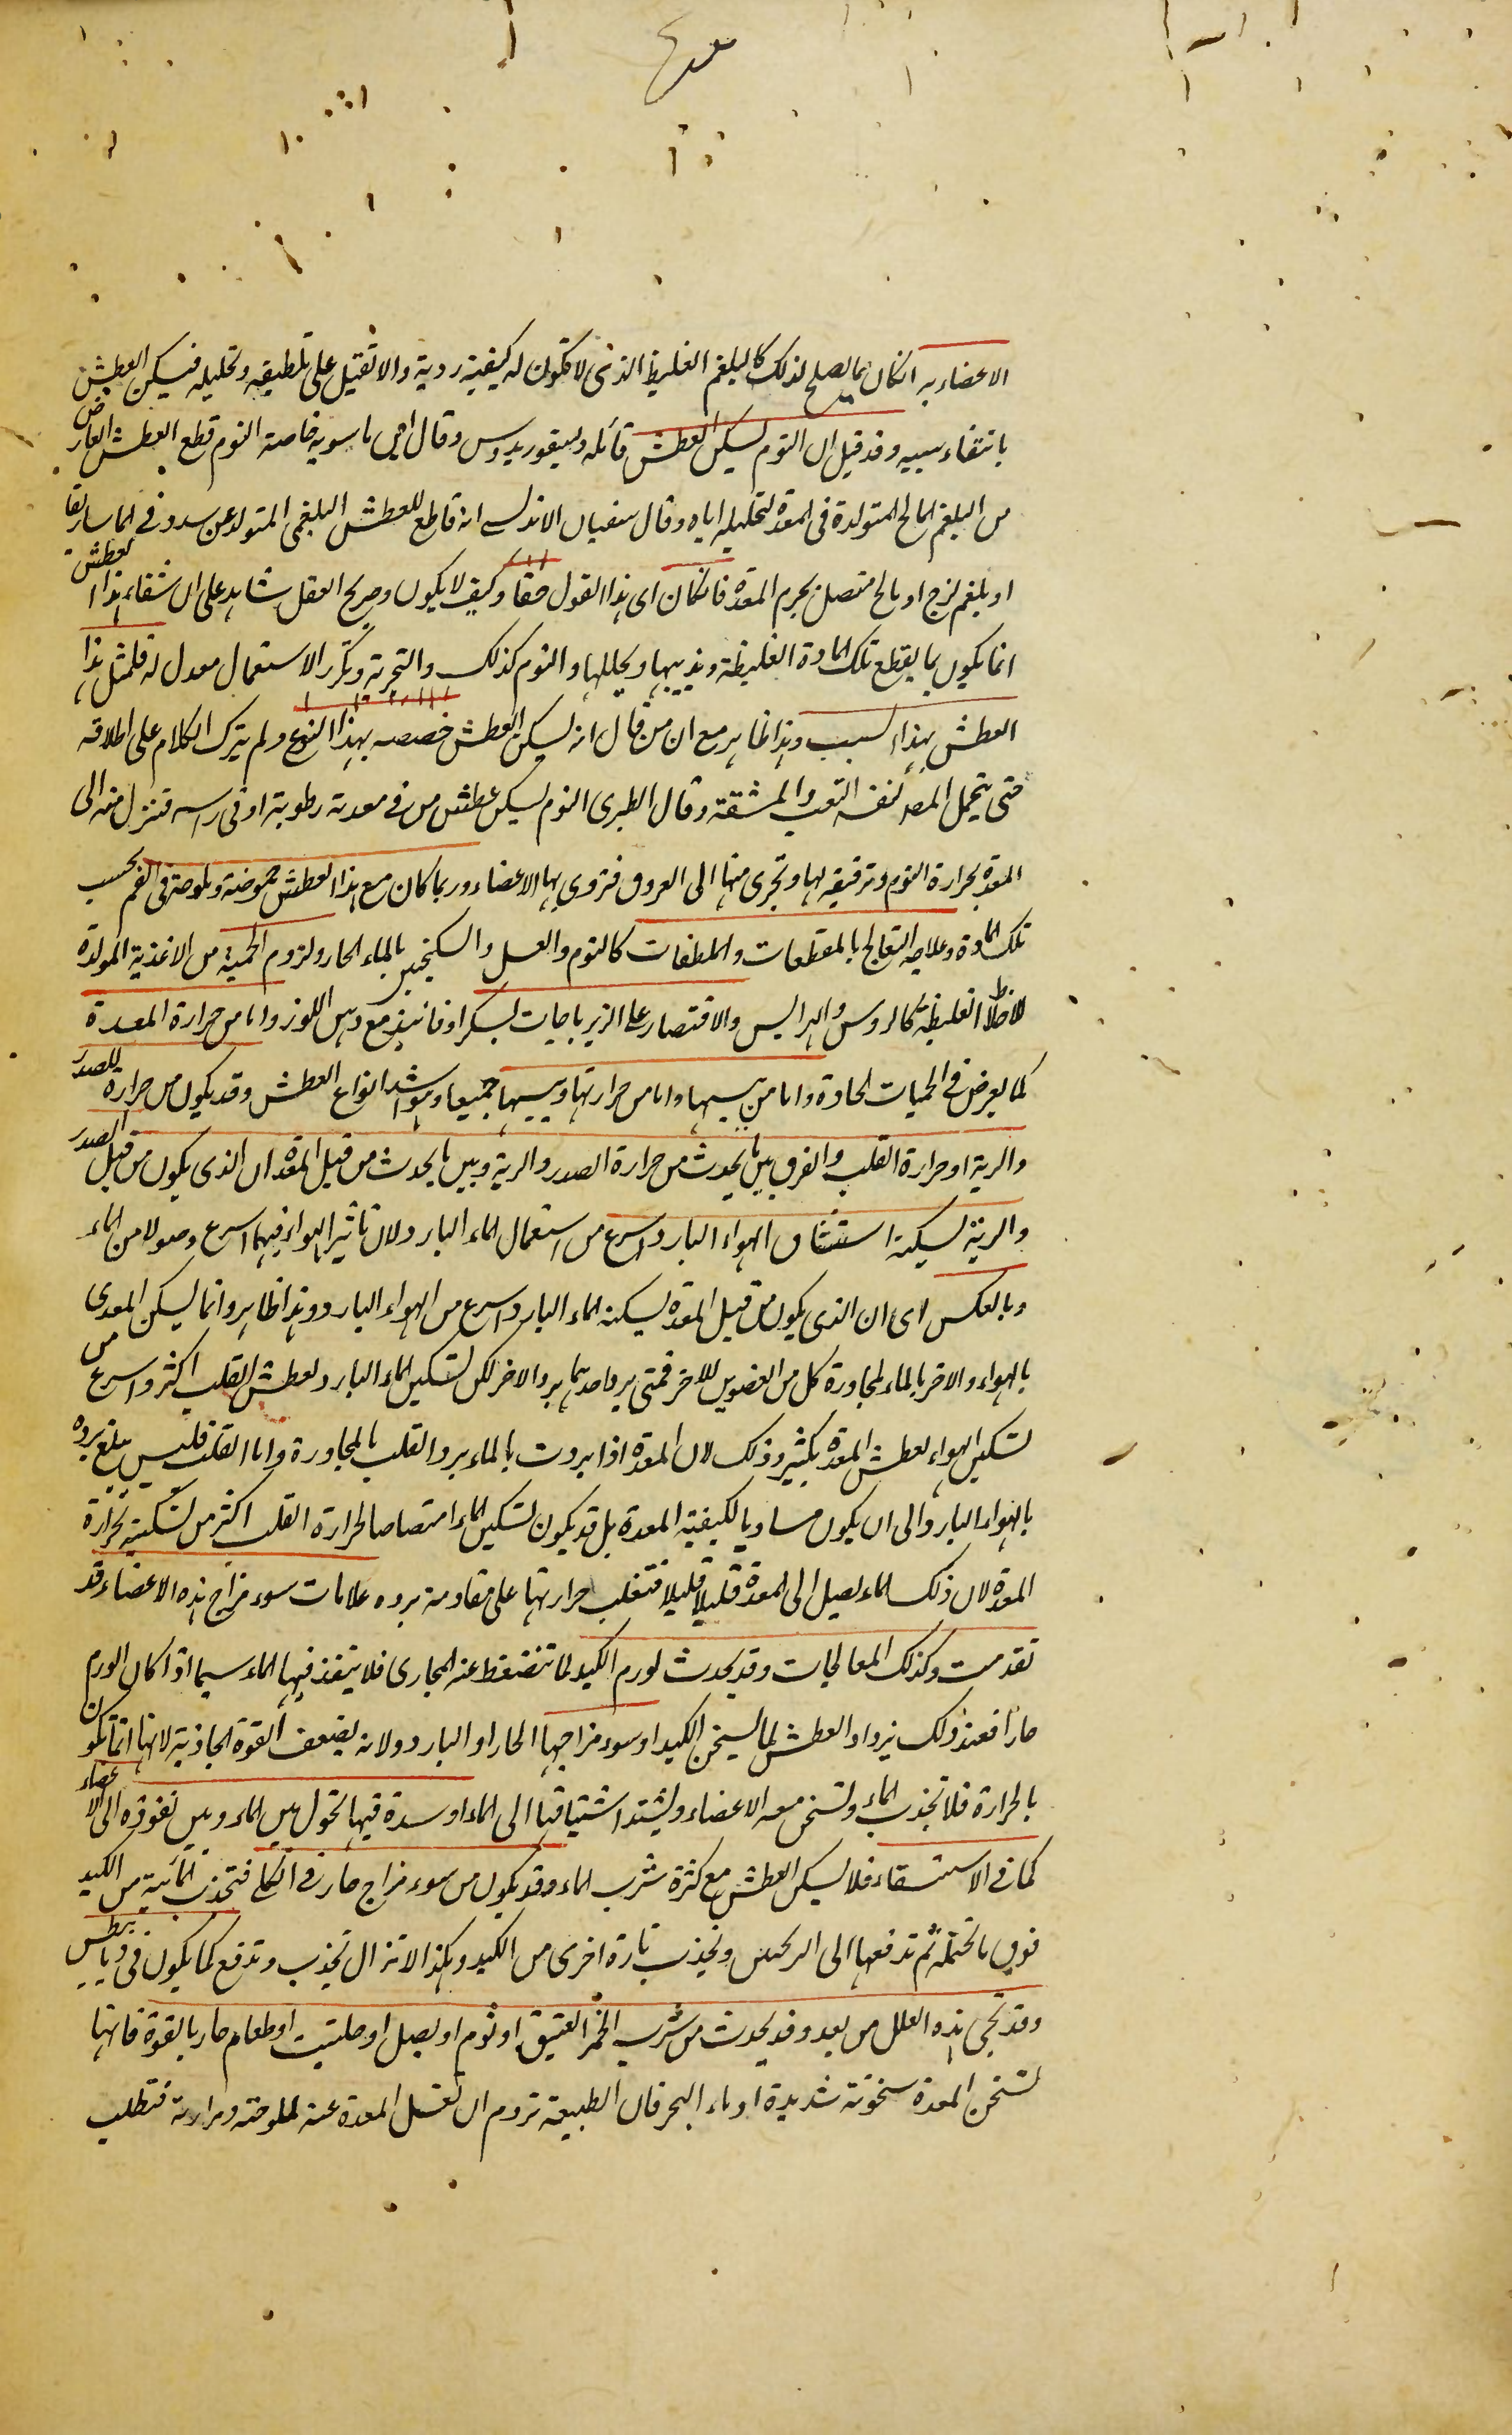 الاعضاء به انكان مما يصلح لذلك كالبلغم الغليظ الذى لا تكون له كيفية ردية والا تقبل على تلطيفه وتحليله فيسكن العطش
بانتفاء سببه وقد قيل ان الثوم يسكن العطش قائله ديسقوريدوس وقال ابن ماسويه خاصة الثوم قطع العطش العارض
من البلغم المالح المتولدة فى المعدة لتحليله اياه وقال سفيان الاندلسى انه قاطع للعطش البلغمى المتولد عن سدد فى الماساريقا
او بلغم لزج او مالح متصل بجرم المعدة فانكان اى هذا القول حقا وكيف لا يكون وصريح العقل شاهد على ان شفاء هذا العطش
انما يكون بما يقطع تلك المادة الغليظة ويذيبها ويحللها والثوم كذلك والتجربة وتكرر الاستعمال معدل له فلمثل هذا
العطش بهذا السبب وهذا ظاهر مع ان من قال انه يسكن العطش خصصه بهذا النوع ولم يترك الكلام على اطلاقه
حتى يتحمل المصـ لنفسه التعب والمشقة وقال الطبرى الثوم يسكن عطش من فى معدته رطوبة او فى راسه فتنزل منه الى
المعدة بحرارة الثوم وترقيقه لها وتجرى منها الى العروق فتروى بها الاعضاء وربما كان مع هذا العطش حموضة وملوحة فى الفم بحسب
تلك المادة وعلاجه التعالج بالمقطعات والملطفات كالثوم والعسل والسكنجبين بالماء الحار ولزوم الحمية من الاغذية المولدة
للاخلاط الغليظة كالروس والهرايس والاقتصار على الزيرباجات بسكر او فانيذ مع دهن اللوز واما من حرارة المعدة
كما يعرض فى الحميات الحادة واما من يبسها واما من حرارتها ويبسها جميعا وهو اشد انواع العطش وقد يكون من حرارة الصدر
والرية او حرارة القلب والفرق بين ما يحدث من حرارة الصدر والرية وبين ما يحدث من قبل المعدة ان الذى يكون من قبل الصدر
والرية يسكنه استنشاق الهواء البارد اسرع من استعمال الماء البارد لان تاثير الهواء فيهما اسرع وصولا من الماء
وبالعكس اى ان الذى يكون من قبل المعدة يسكنه الماء البارد اسرع من الهواء البارد وهذا ظاهر وانما يسكن المعدى
بالهواء والاخر بالماء لمجاورة كل من العضوين للاخر فمتى برد احدهما برد الاخر لكن تسكين الماء البارد لعطش القلب اكثر واسرع من
تسكين الهواء لعطش المعدة بكثير وذلك لان المعدة اذا بردت بالماء برد القلب بالمجاورة واما القلب فليس يبلغ برده
بالهواء البارد الى ان يكون مساويا لكيفية المعدة بل قد يكون تسكين الماء امتصاصا لحرارة القلب اكثر من تسكينه لحرارة
المعدة لان ذلك الماء يصل الى المعدة قليلا قليلا فتغلب حرارتها على مقاومة برده علامات سوء مزاج هذه الاعضاء قد
تقدمت وكذلك المعالجات وقد يحدث لورم الكبد لما تنضغط عنه المجارى فلا ينفذ فيها الماء سيما اذا كان الورم
حارا فعند ذلك يزداد العطش لما يسخن الكبد او سوء مزاجها الحار او البارد ولانه يضعف القوة الجاذبة لانها انما تكون
بالحرارة فلا تجذب الماء وتسخن معه الاعضاء ويشتد اشتياقها الى الماء او سدة فيها تحول بين الماء وبين نفوذه الى الاعضاء
كما فى الاستسقاء فلا يسكن العطش مع كثرة شرب الماء وقد يكون من سوء مزاج حار فى الكلى فتجذب المائية من الكبد
فوق ما تحتمله ثم تدفعها الى وتجذب تارة اخرى من الكبد وهكذا لا تزال تجذب وتدفع كما يكون فى ديابيطس
وقد تجى هذه العلل من بعد وقد يحدث من شرب الخمر العتيق او ثوم او بصل او حلتيت او طعام حار بالقوة فانها
تسخن المعدة سخونة شديدة او ماء البحر فان الطبيعة تروم ان تغسل المعدة عنه لملوحته ومرارته فتطلب